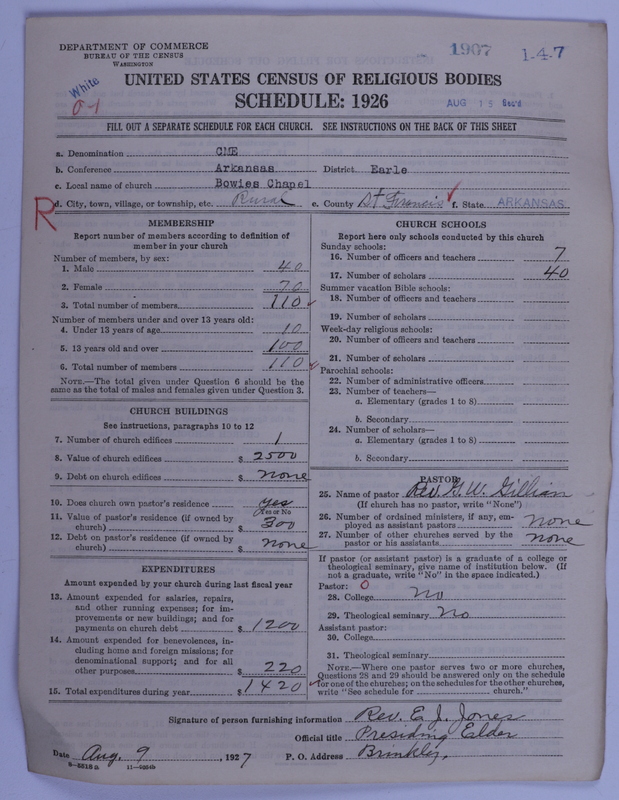 DEPARTMENT OF COMMERCE
BUREAU OF THE CENSUS
WASHINGTON
1907
1-4-7
White
0-1
UNITED STATES CENSUS OF RELIGIOUS BODIES
SCHEDULE: 1926
AUG 15 Rec'd
FILL OUT A SEPARATE SCHEDULE FOR EACH CHURCH. SEE INSTRUCTIONS ON THE BACK OF THIS SHEET
a. Denomination CME
b. Conference Arkansas District Earle
c. Local name of church Bowies Chapel
R
d. City, town, village, or township, etc. Rural e. County St Francis f. State ARKANSAS
MEMBERSHIP
Report number of members according to definition of
member in your church
Number of members, by sex:
1. Male 40
2. Female 70
3. Total number of members 110
Number of members under and over 13 years old:
4. Under 13 years of age 10
5. 13 years old and over 100
6. Total number of members 110
NOTE.—The total given under Question 6 should be the
same as the total of males and females given under Question 3.
CHURCH BUILDINGS
See instructions, paragraphs 10 to 12
7. Number of church edifices 1
8. Value of church edifices $ 2500
9. Debt on church edifices $ none
10. Does church own pastor's residence yes
Yes or No
11. Value of pastor's residence (if owned by
church) $ 300
12. Debt on pastor's residence (if owned by
church) $ none
EXPENDITURES
Amount expended by your church during last fiscal year
13. Amount expended for salaries, repairs,
and other running expenses; for im-
provements or new buildings; and for
payments on church debt $ 1200
14. Amount expended for benevolences, in-
cluding home and foreign missions; for
denominational support; and for all
other purposes $ 220
15. Total expenditures during year $ 1420
CHURCH SCHOOLS
Report here only schools conducted by this church
Sunday schools:
16. Number of officers and teachers 7
17. Number of scholars 40
Summer vacation Bible schools:
18. Number of officers and teachers
19. Number of scholars
Week-day religious schools:
20. Number of officers and teachers
21. Number of scholars
Parochial schools:
22. Number of administrative officers
23. Number of teachers—
a. Elementary (grades 1 to 8)
b. Secondary
24. Number of scholars—
a. Elementary (grades 1 to 8)
b. Secondary
PASTOR
25. Name of pastor Rev. G. W. Gillian
(If church has no pastor, write "None")
26. Number of ordained ministers, if any, em-
ployed as assistant pastors none
27. Number of other churches served by the
pastor or his assistants none
If pastor (or assistant pastor) is a graduate of a college or
theological seminary, give name of institution below. (If
not a graduate, write "No" in the space indicated.)
Pastor: 0
28. College No
29. Theological seminary No
Assistant pastor:
30. College
31. Theological seminary
NOTE.—Where one pastor serves two or more churches,
Questions 28 and 29 should be answered only on the schedule
for one of the churches; on the schedules for the other churches,
write "See schedule for church."
Signature of person furnishing information Rev. E. J. Jones
Official title Presiding Elder
Date Aug. 9, 1927 P. O. Address Brinkley,
8-5516 a 11-9054b